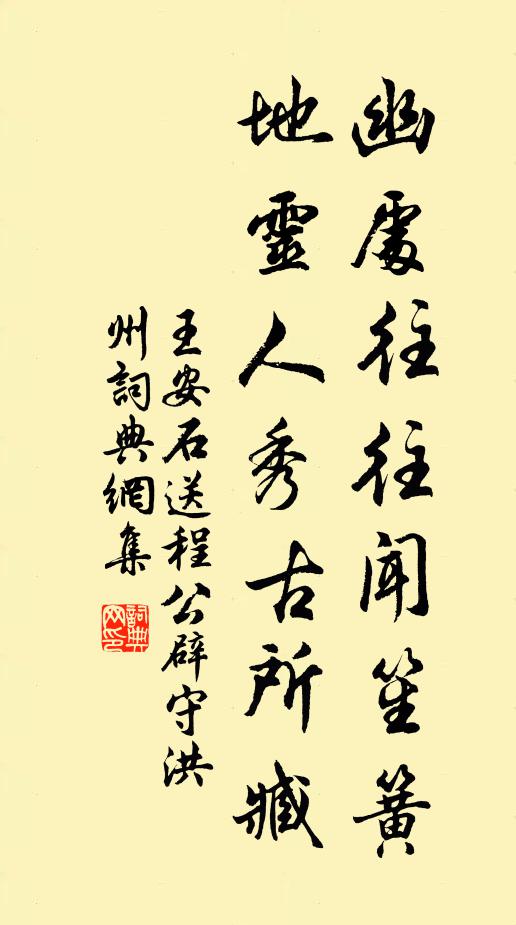 幽處往往聞笙簧
地靈人秀古所臧
王安石送程公辟守洪
州詞典網集
詞典
网印